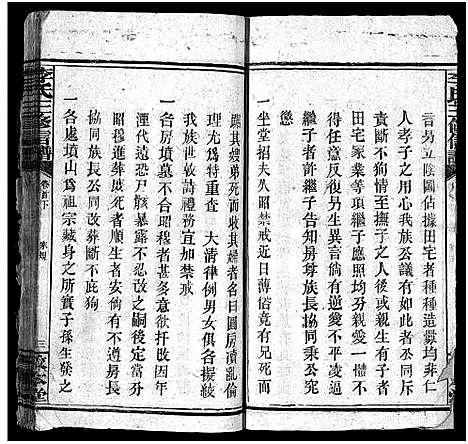 言男立陰圖佔據田宅者種種造釁均非仁
人孝子之用心我族公議有如此者公同斥
責斷不價至于撫子之人後或親生有子者
田宅家業等項繼子應照均分親愛一體如
待任意反復男生異言倘有逆愛不平凌逼
者許繼子告知房尊族長協同秉公究
懲
一坐堂招夫久昭禁戒近日薄俗竟有兄死
鳳其嫂弟死而收其婦者名曰圓房瀆亂倫
理尤為特重查 大清律例男女俱各擬絞
我族世敦詩禮務宜加禁戒
一各房墳墓不合昭穆者甚多意欲扦改因年
湮代遠恐尸骸暴露不忍改之嗣後定當分
昭穆進葬庶死者順生者安倘有不遵房長
協同族長公同改葬斷不庇狥
一各處墳山為祖宗藏身之所實子孫生發之
李氏三修信譜
卷首下
家規
三